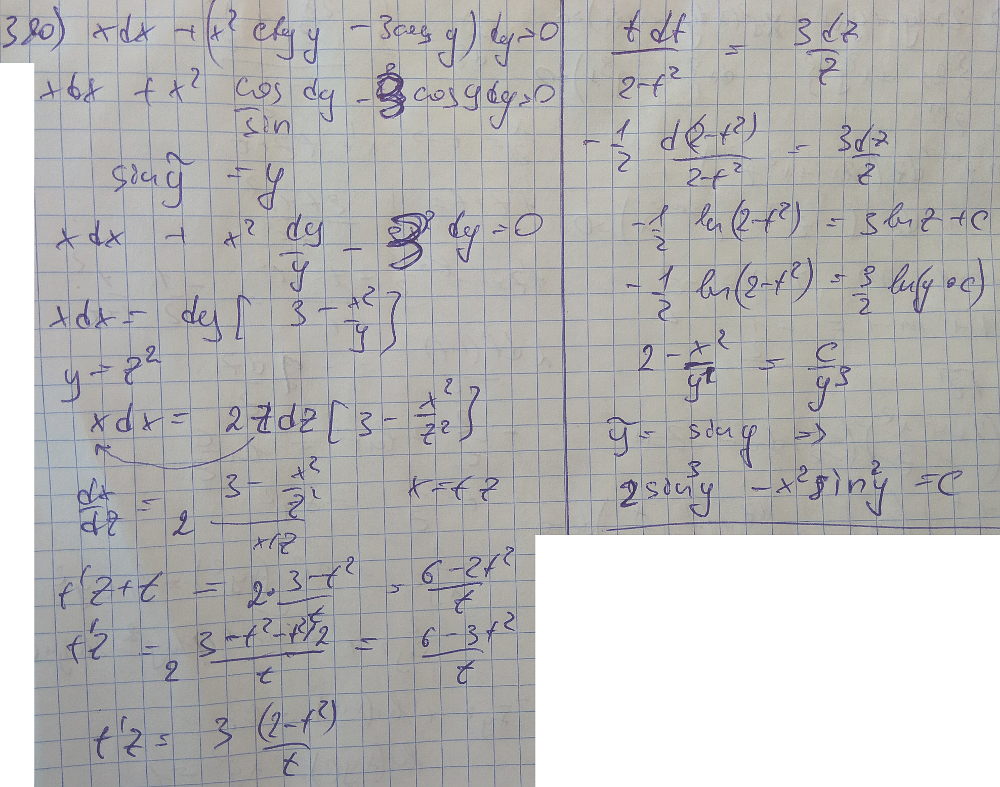 380) xdx + (x² ctg y - 3cos y) dy = 0
xdx + x² cos/sin dy - 3 cos y dy = 0
sin ỹ = y
xdx + x² dy/y - 3 dy = 0
xdx = dy [3 - x²/y]
y = z²
xdx = 2zdz [3 - x²/z²]
dx/dz = 2 (3 - x²/z²)/(x/z) x = tz
t'z + t = 2 · (3 - t²)/t = (6 - 2t²)/t
t'z = 2 (3 - t² - t²/2)/t = (6 - 3t²)/t
t'z = 3 (2 - t²)/t
tdt/(2 - t²) = 3dz/z
-1/2 d(2 - t²)/(2 - t²) = 3dz/z
-1/2 ln(2 - t²) = 3 ln z + C
-1/2 ln(2 - t²) = 3/2 ln(y · C)
2 - x²/y = C/y³
ỹ = sin y ⇒
2sin³y - x² sin²y = C